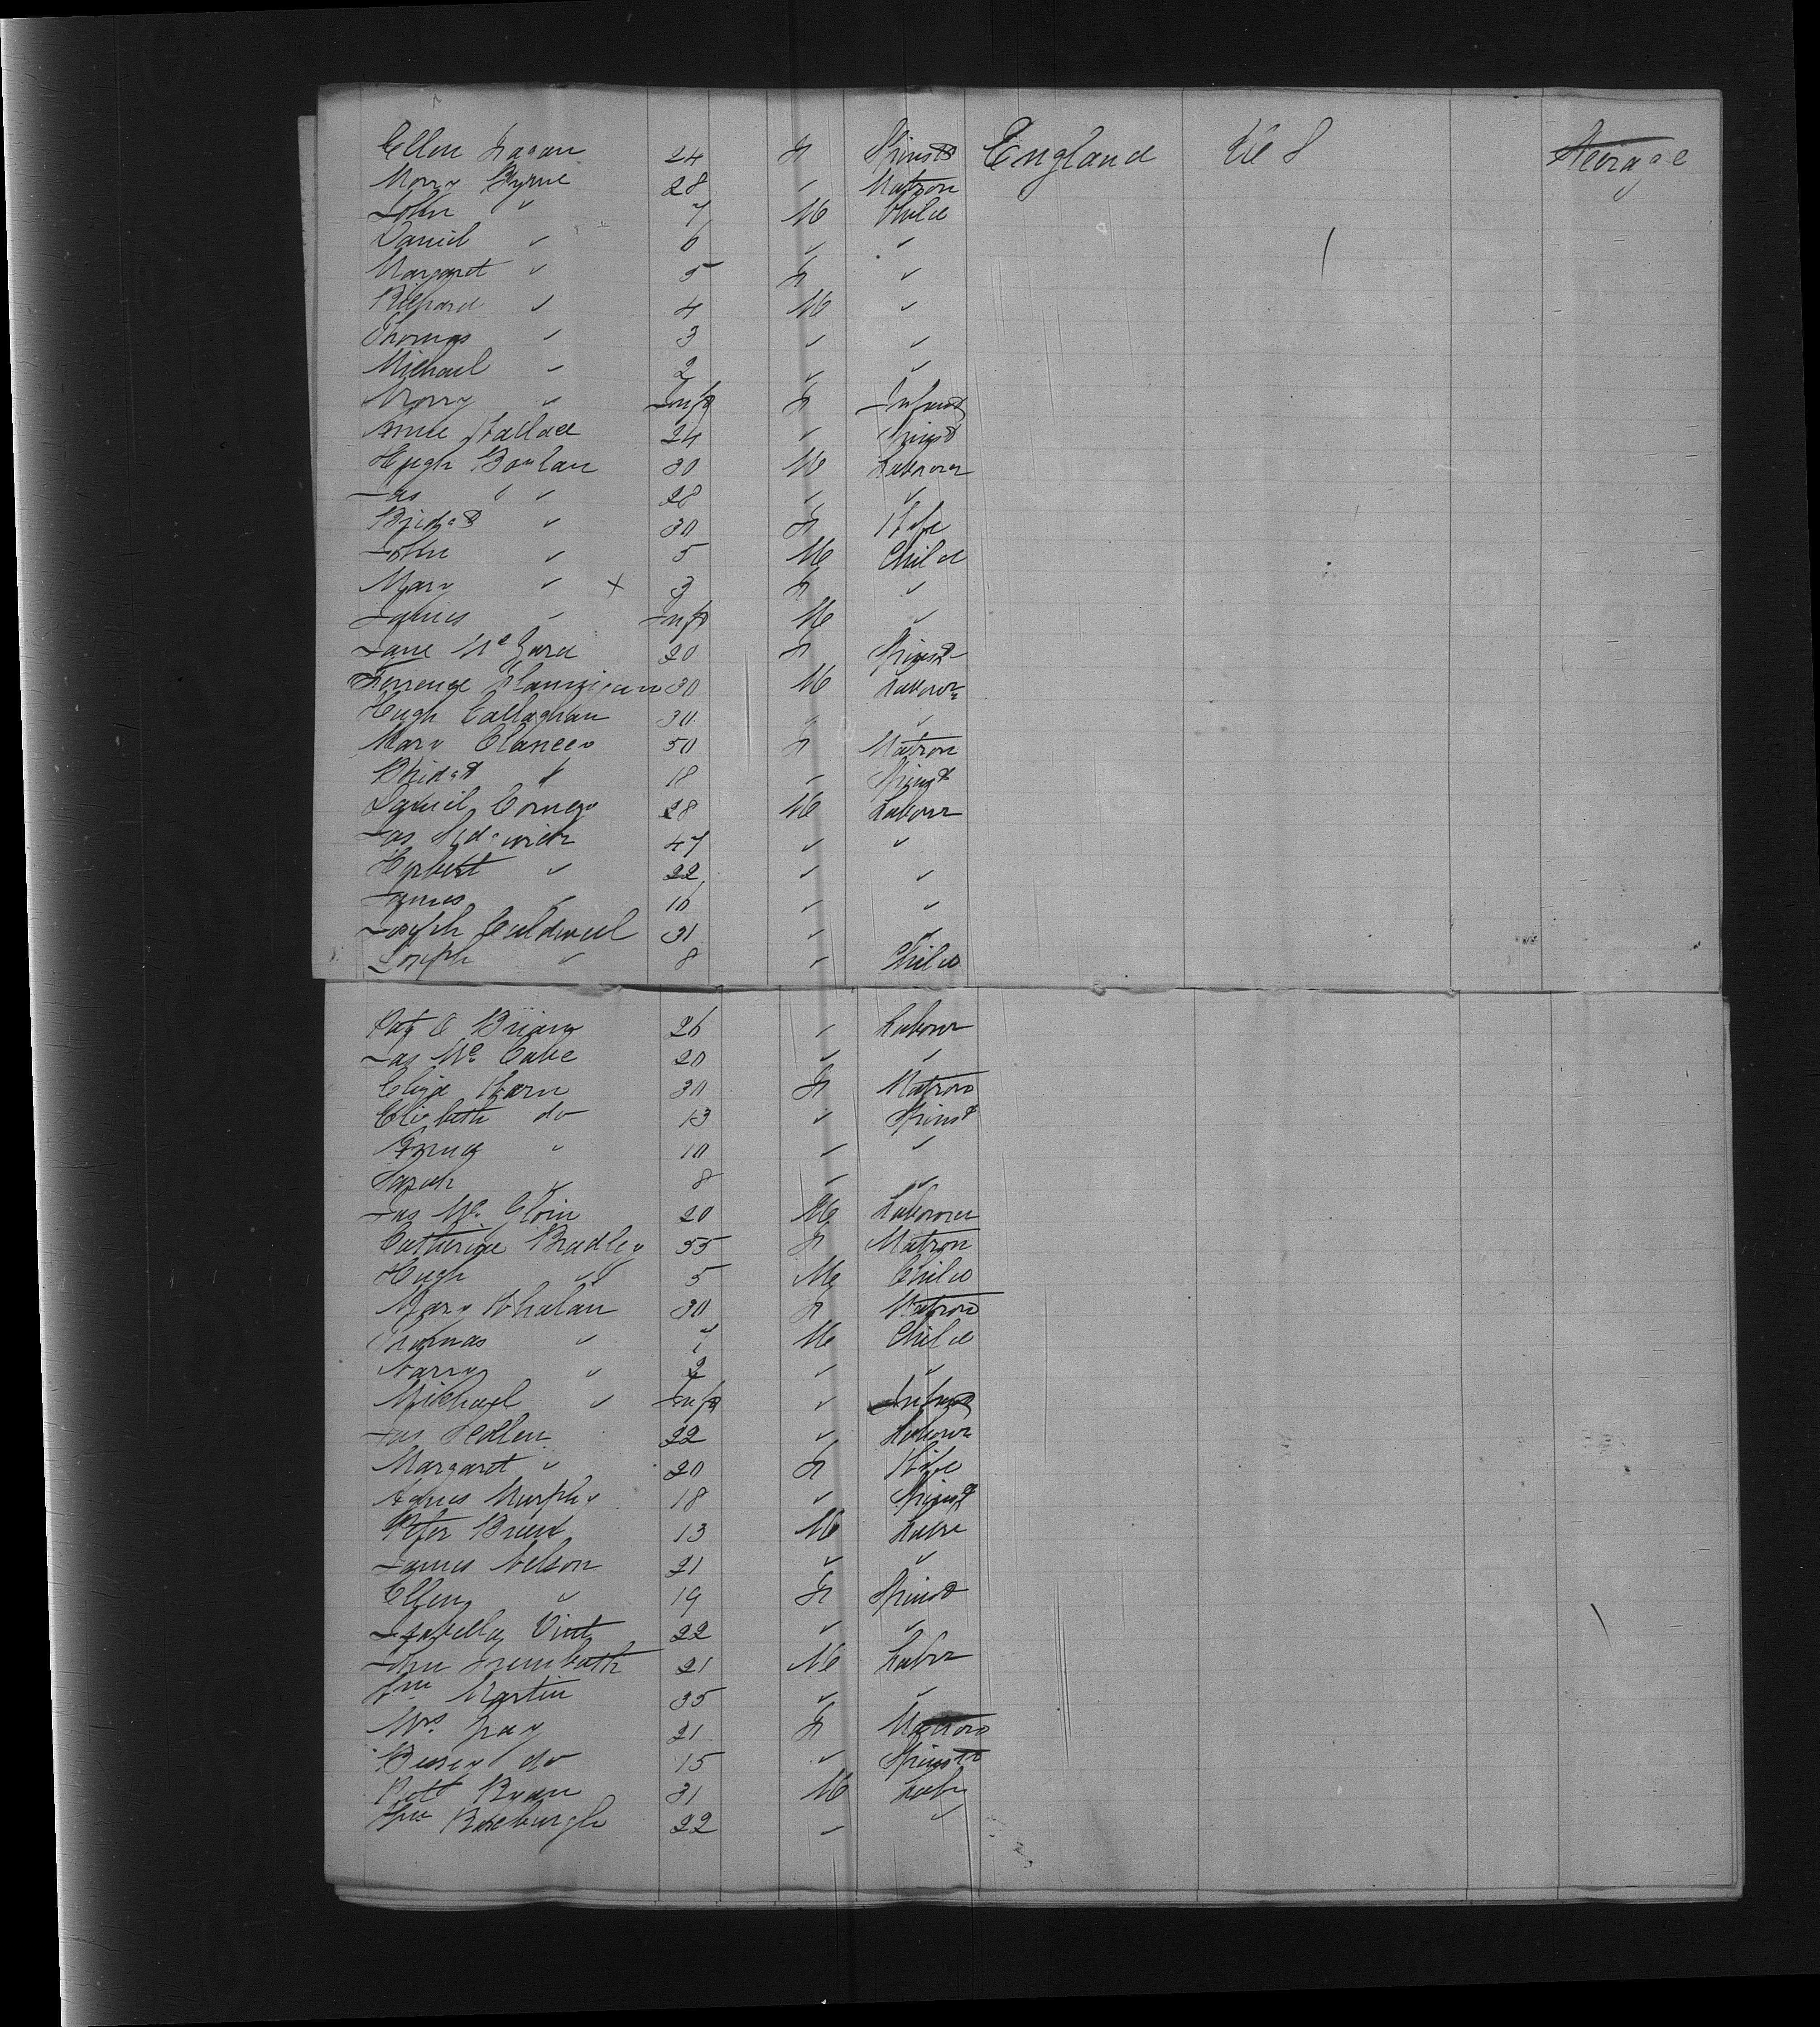 Ellen Fagan 24 F Spinst England U S Steerage
Mary Byrne 28 " Matron
John " 7 M Child
Daniel " 6 " "
Margaret " 5 F "
Richard " 4 M "
Thomas " 3 " "
Michael " 2 " "
Mary " Inft F Infant
Annie Wallace 24 " Spinst
Hugh Boylan 30 M Labourer
Jas " " 28 " "
Bridgt " 30 F Wife
John " 5 M Child
Mary " x 3 F "
James " Inft M "
Jane Mc 20 F Spinst
Terrence Flannigan 30 M Labour
Hugh Callaghan 30 " "
Mary Clancey 50 F Matron
Bridgt " 18 " Spinst
Daniel 28 M Labour
Jas Sedgwick 47 " "
Herbert " 22 " "
James " 16 " "
Joseph Culdwell 31 " "
Joseph " 8 " Child
Pat O 26 " Labour
Jas Mc Cabe 20 " "
Eliza 30 F Matron
do 13 " Spinst
10 " "
Sarah " 8 " "
Jas Mc 20 M Labourer
Catherine Bradley 55 F Matron
Hugh " 5 M Child
Mary Whalan 30 F Matron
Thomas " 7 M Child
" 2 " "
Michael " Inft " Infant
Jas 22 " Labour
Margaret " 20 F Wife
Agnes Murphy 18 " Spinst
Peter 13 M Labr
James Nelson 21 " "
Ellen " 19 F Spinst
Isabella 22 " "
John Trembath 21 M Labr
Wm Martin 35 " "
Mrs Gray 21 F Matron
do 15 " Spinst
Robt 31 M Labr
Wm 22 " "